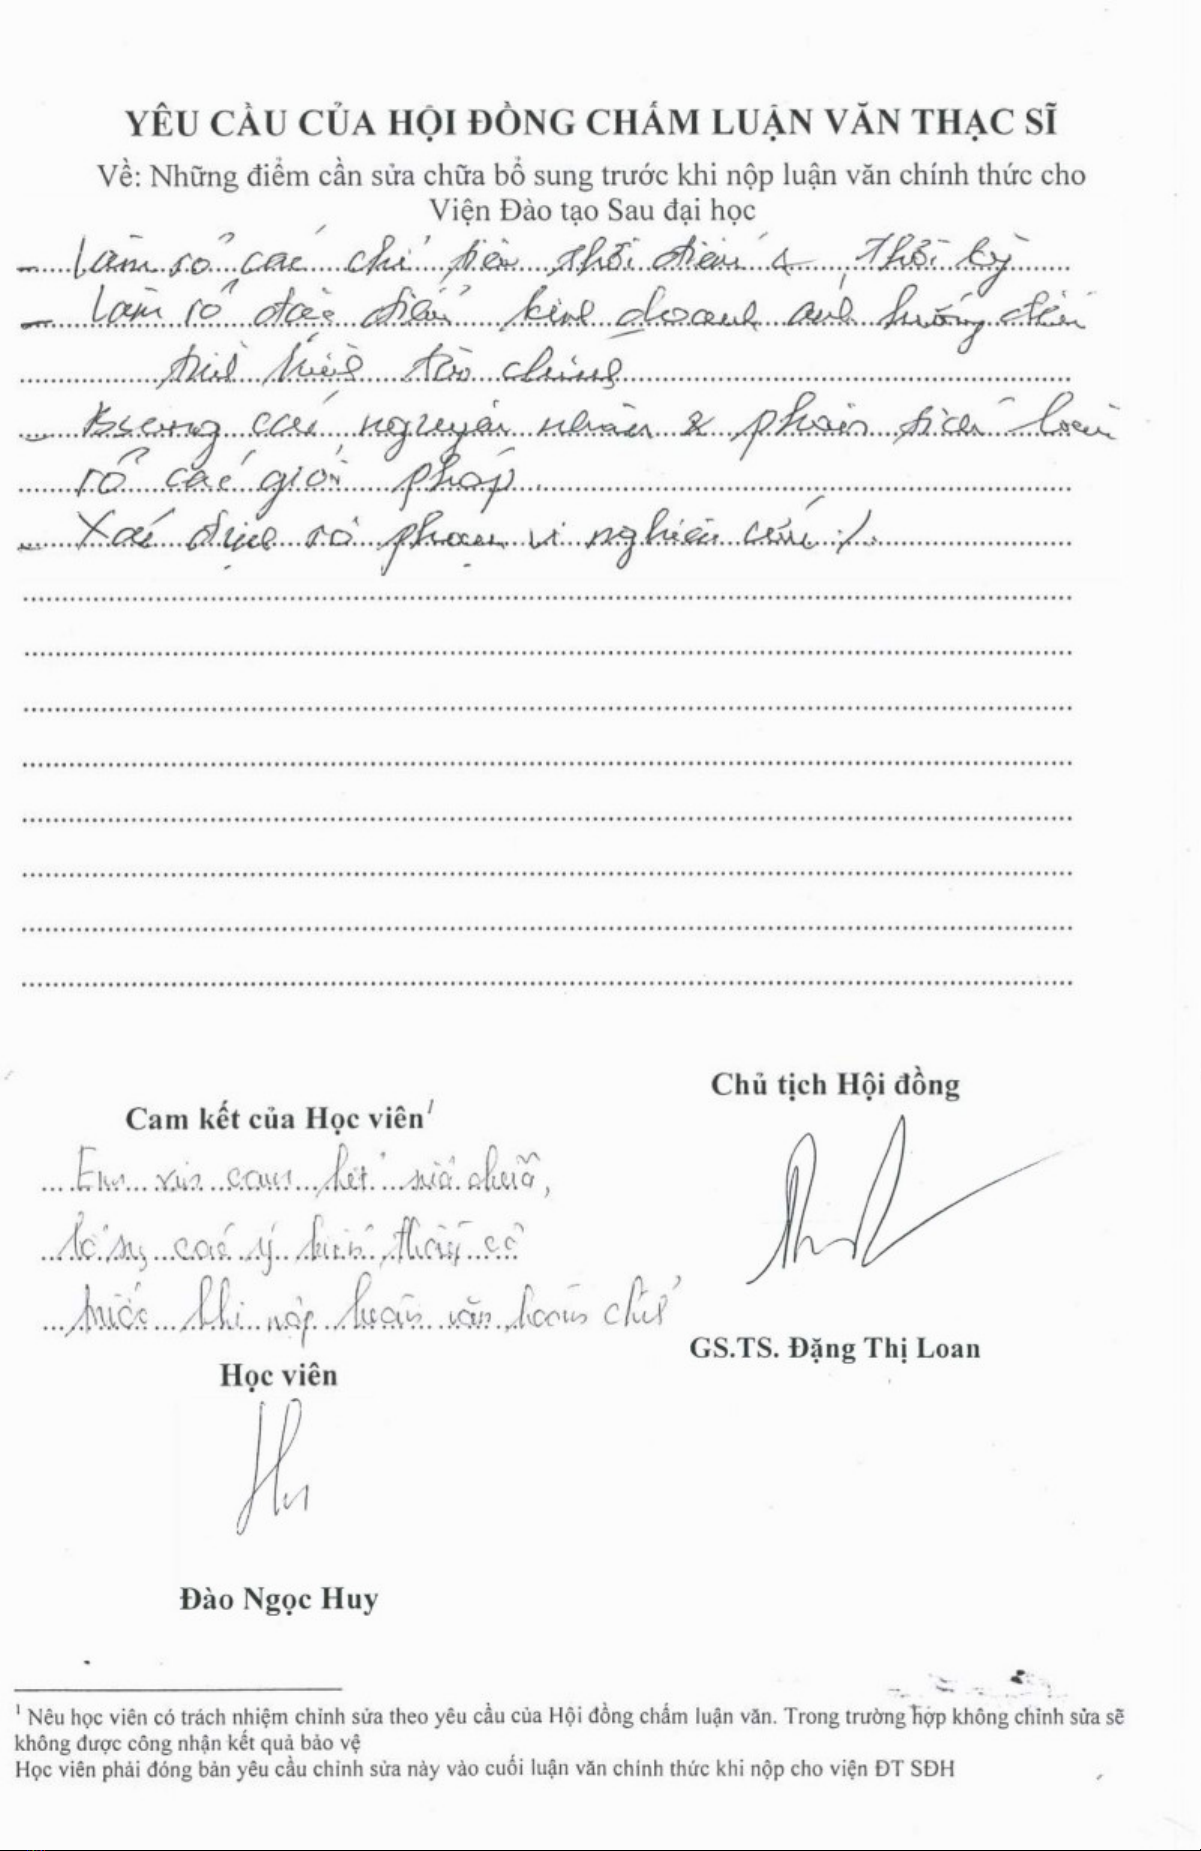 YÊU CẦU CỦA HỘI ĐỒNG CHẤM LUẬN VĂN THẠC SĨ
Về: Những điểm cần sửa chữa bổ sung trước khi nộp luận văn chính thức cho
Viện Đào tạo Sau đại học
- Làm rõ các chỉ tiêu thời điểm & thời kỳ
- Làm rõ đặc điểm kinh doanh ảnh hưởng đến
tài chính
- Bsung các nguyên nhân & phân tích
rõ các giải pháp.
- Xác định rõ phạm vi nghiên cứu ./.
Chủ tịch Hội đồng
Cam kết của Học viên1
Em xin cam kết sửa chữa,
bổ sung các ý kiến thầy cô
trước khi nộp luận văn hoàn chỉnh
GS.TS. Đặng Thị Loan
Học viên
Đào Ngọc Huy
1 Nêu học viên có trách nhiệm chỉnh sửa theo yêu cầu của Hội đồng chấm luận văn. Trong trường hợp không chỉnh sửa sẽ
không được công nhận kết quả bảo vệ
Học viên phải đóng bản yêu cầu chỉnh sửa này vào cuối luận văn chính thức khi nộp cho viện ĐT SĐH